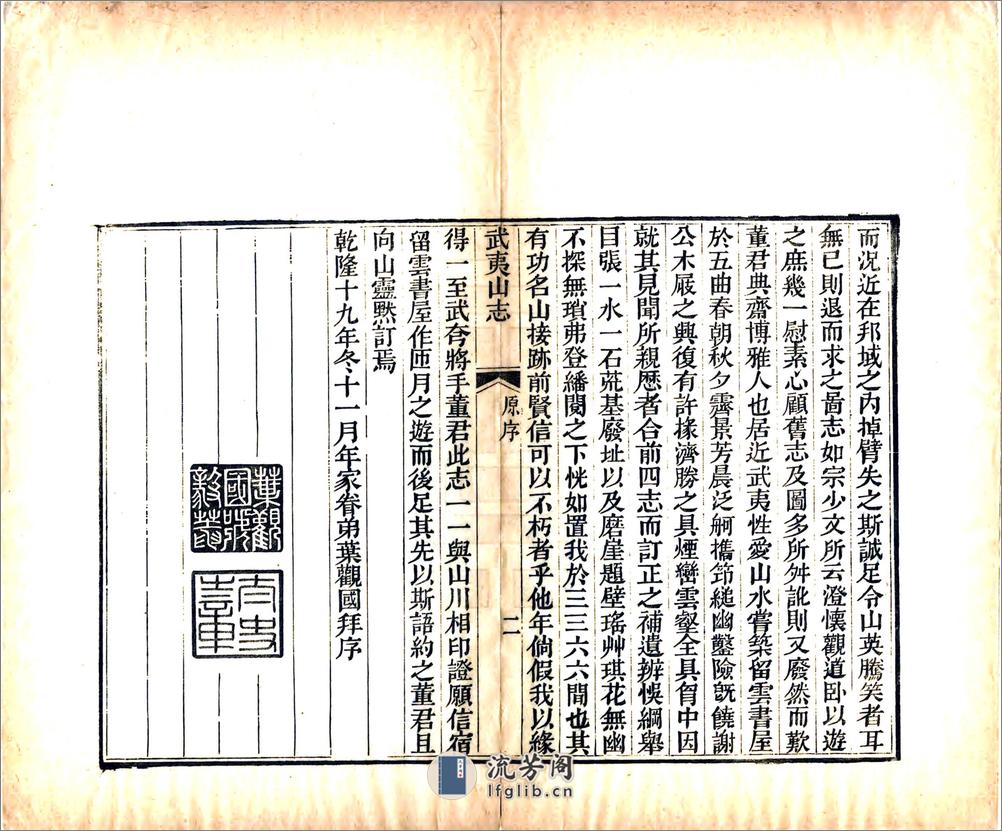 而況近在邦域之內掉臂失之斯誠足令山英騰笑者耳
無已則退而求之啚志如宗少文所云澄懷觀道卧以遊
之庶幾一慰素心顧舊志及圖多所舛訛則又廢然而歎
董君典齋博雅人也居近武夷性愛山水嘗築留雲書屋
於五曲春朝秋夕霽景芳晨泛舸攜笻縋幽鑿險旣饒謝
公木屐之興復有許掾濟勝之具煙巒雲壑全具胷中因
就其見聞所親歷者合前四志而訂正之補遺辨悞綱舉
目張一水一石荒基廢址以及磨崖題壁瑤艸琪花無幽
不探無瑣弗登繙閱之下恍如置我於三三六六間也其
有功名山接跡前賢信可以不朽者乎他年倘假我以緣
武夷山志
原序
二
得一至武夸將手董君此志一一與山川相印證願信宿
留雲書屋作匝月之遊而後足其先以斯語約之董君且
向山靈黙訂焉
乾隆十九年冬十一月年家眷弟葉觀國拜序
葉觀國號毅菴
太史章
流芳阁
lfglib.cn